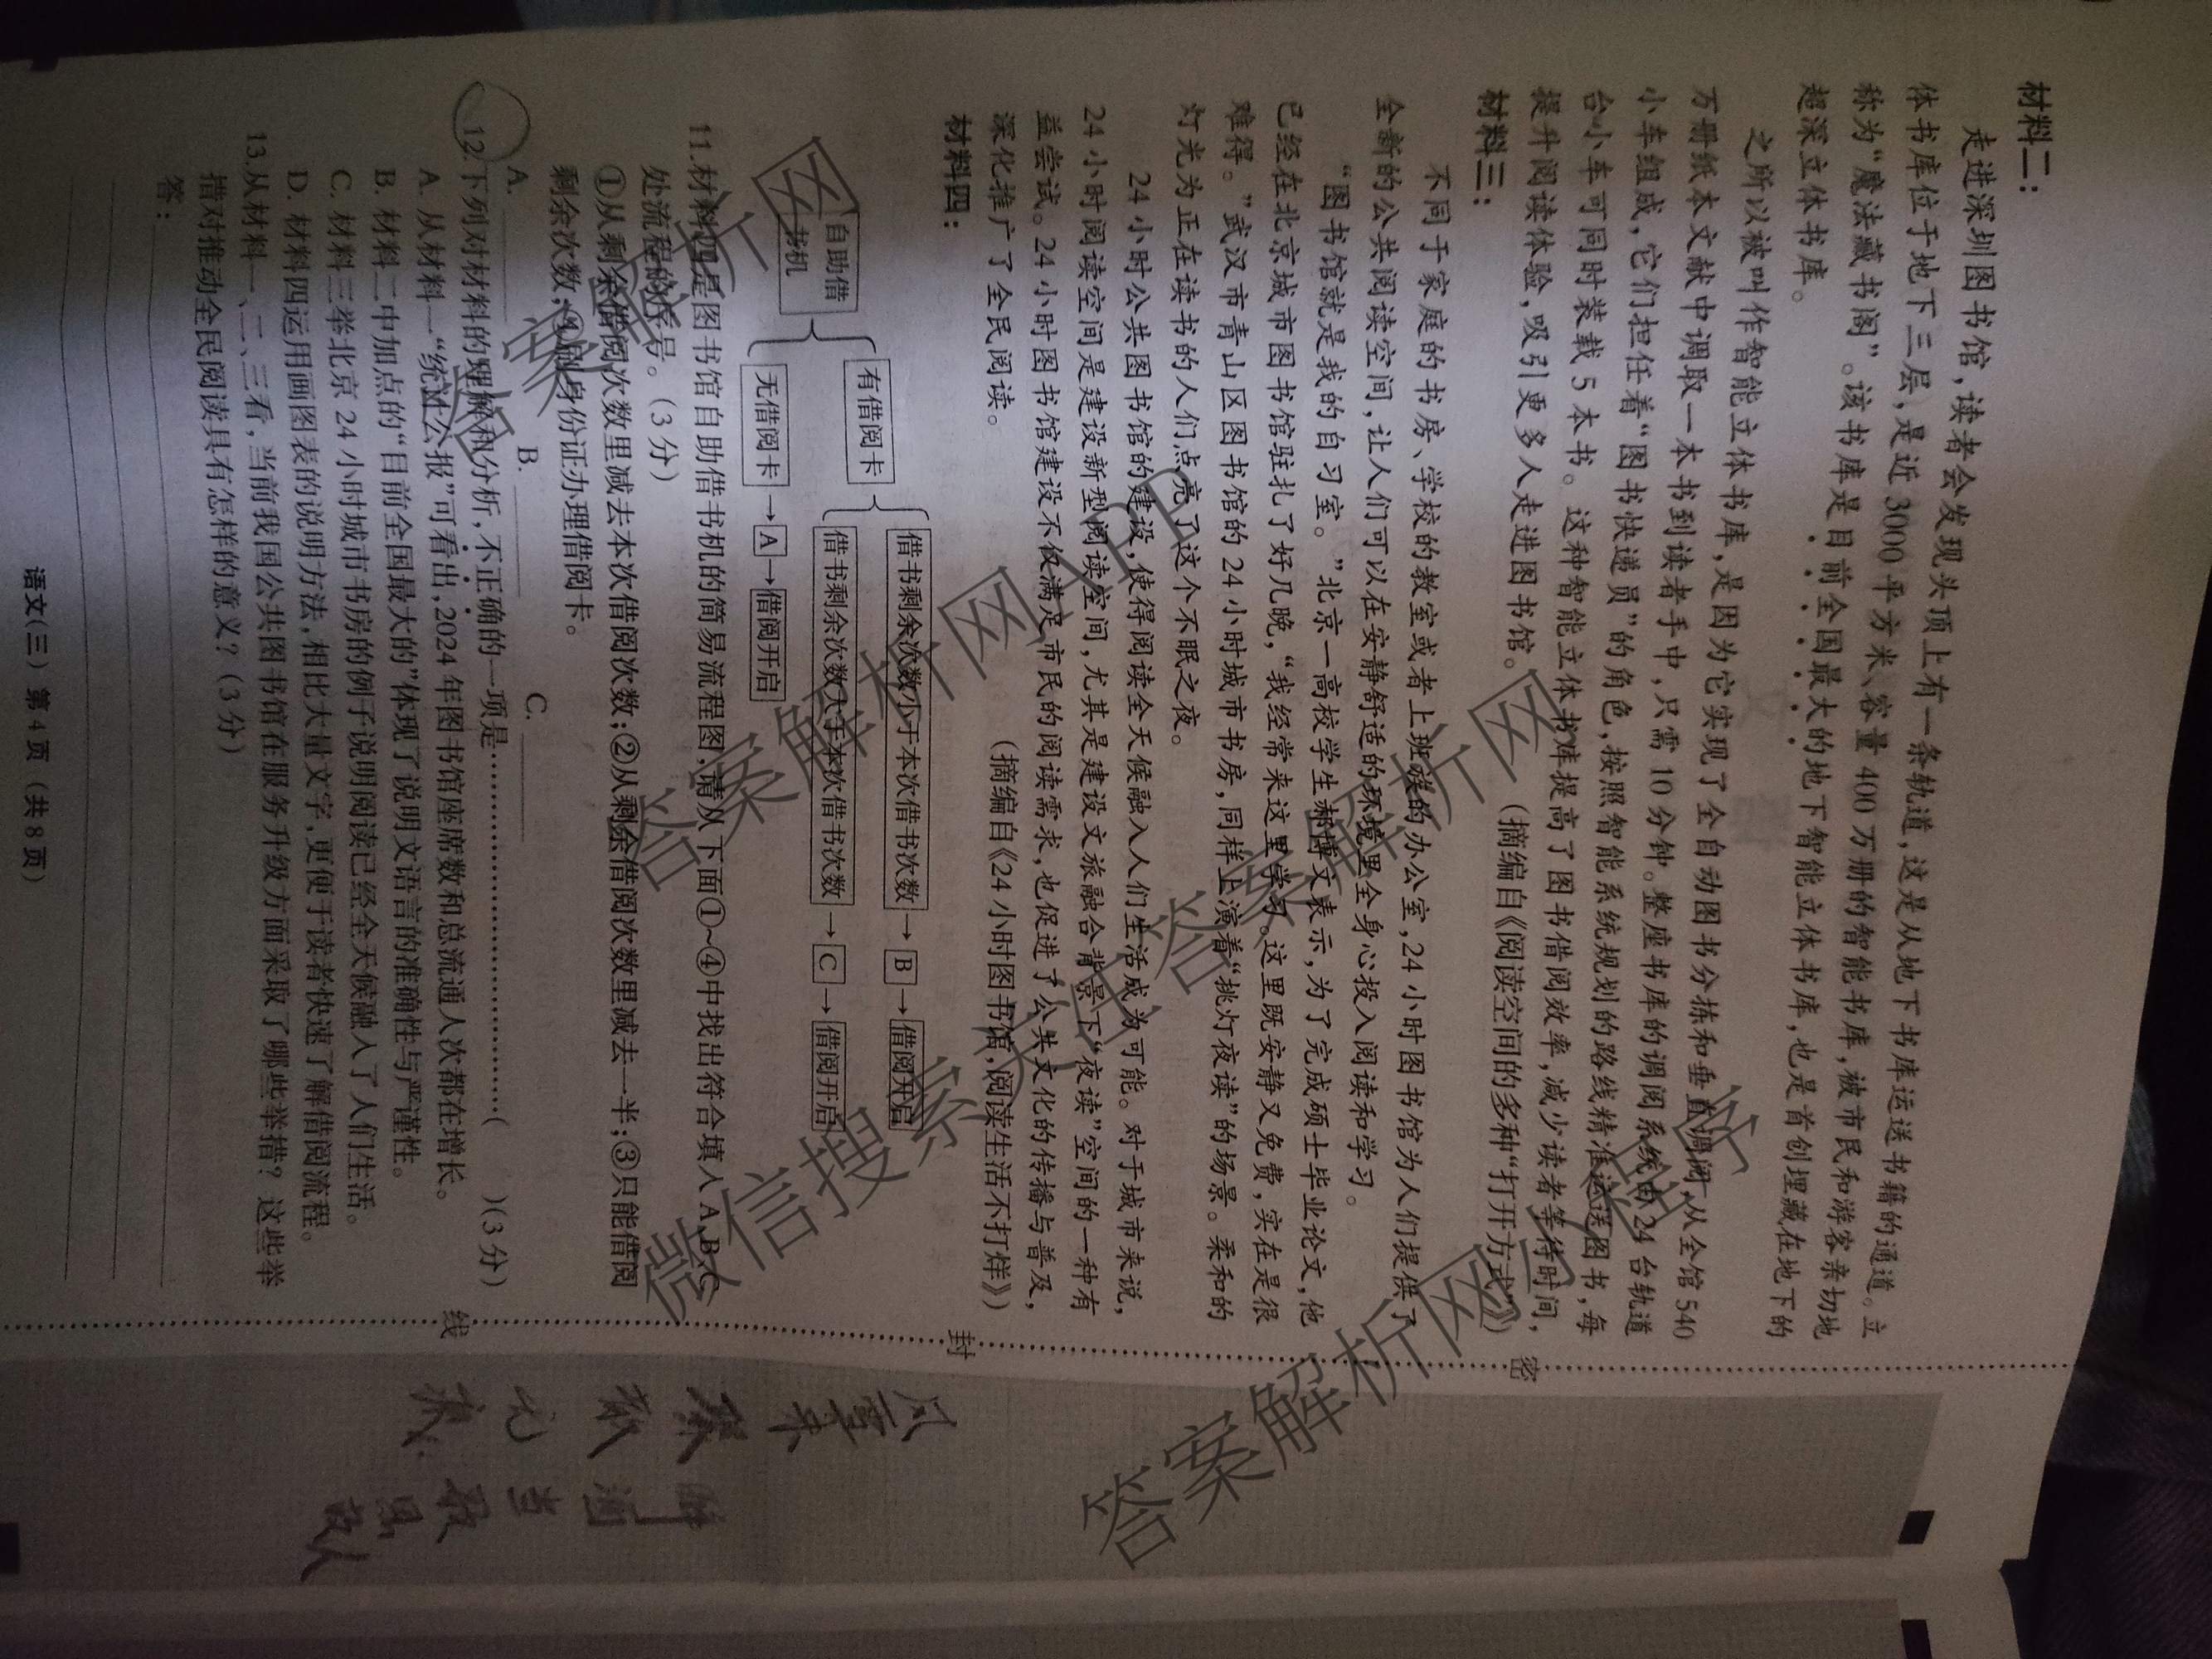 材料二：
走进深圳图书馆，读者会发现头顶上有一条轨道，这是从地下书库运送书籍的通道。立
体书库位于地下三层，是近3000平方米、容量400万册的智能书库，被市民和游客亲切地
称为“魔法藏书阁”。该书库是目前全国最大的地下智能立体书库，也是首创埋藏在地下的
超深立体书库。
之所以被叫作智能立体书库，是因为它实现了全自动图书分拣和垂直调阅，从全馆540
万册纸本文献中调取一本书到读者手中，只需10分钟。整座书库的调阅系统由24台轨道
小车组成，它们担任着“图书快递员”的角色，按照智能系统规划的路线精准运送图书，每
台小车可同时装载5本书。这种智能立体书库提高了图书借阅效率，减少读者等待时间，
提升阅读体验，吸引更多人走进图书馆。
（摘编自《阅读空间的多种“打开方式”》）
材料三：
不同于家庭的书房、学校的教室或者上班族的办公室，24小时图书馆为人们提供了
全新的公共阅读空间，让人们可以在安静舒适的环境里全身心投入阅读和学习。
“图书馆就是我的自习室。”北京一高校学生郝博文表示，为了完成硕士毕业论文，他
已经在北京城市图书馆驻扎了好几晚，“我经常来这里学习。这里既安静又免费，实在是很
难得。”武汉市青山区图书馆的24小时城市书房，同样上演着“挑灯夜读”的场景。柔和的
灯光为正在读书的人们点亮了这个不眠之夜。
24小时公共图书馆的建设，使得阅读全天候融入人们生活成为可能。对于城市来说，
24小时阅读空间是建设新型阅读空间，尤其是建设文旅融合背景下“夜读”空间的一种有
益尝试。24小时图书馆建设不仅满足市民的阅读需求，也促进了公共文化的传播与普及，
深化推广了全民阅读。
（摘编自《24小时图书馆，阅读生活不打烊》）
材料四：
自助借书机
有借阅卡
借书剩余次数小于本次借书次数→B→借阅开启
借书剩余次数大于本次借书次数→C→借阅开启
无借阅卡→A→借阅开启
11.材料四是图书馆自助借书机的简易流程图，请从下面①~④中找出符合填入A、B、C
处流程的序号。（3分）
①从剩余借阅次数里减去本次借阅次数；②从剩余借阅次数里减去一半；③只能借阅
剩余次数；④刷身份证办理借阅卡。
A. B. C.
12.下列对材料的理解和分析，不正确的一项是……………………（ ）（3分）
A. 从材料一“统计公报”可看出，2024年图书馆座席数和总流通人次都在增长。
B. 材料二中加点的“目前全国最大的”体现了说明文语言的准确性与严谨性。
C. 材料三举北京24小时城市书房的例子说明阅读已经全天候融入了人们生活。
D. 材料四运用画图表的说明方法，相比大量文字，更便于读者快速了解借阅流程。
13.从材料一、二、三看，当前我国公共图书馆在服务升级方面采取了哪些举措？这些举
措对推动全民阅读具有怎样的意义？（3分）
答：
语文（三）第4页（共8页）
密
封
线
微信搜索
答案解析网
答案解析网
答案解析网